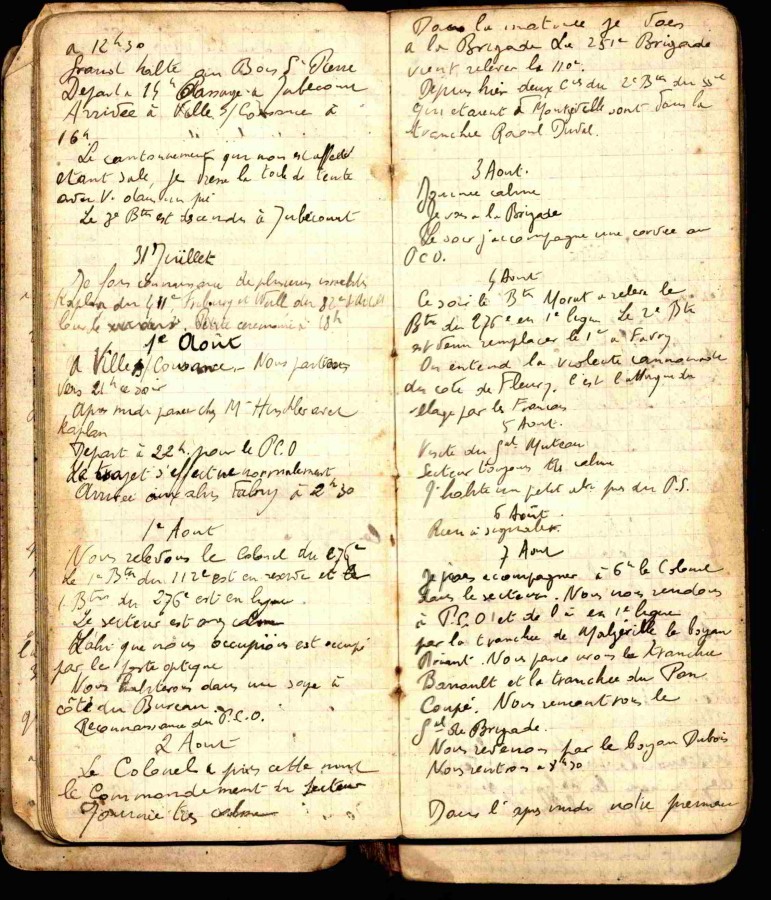 à 12h30
Grand halte au Bois St Pierre
Depart à 14h Passage à Jubécourt
Arrivée à Ville s/ Cousance à
16h
Le cantonnement qui nous est affecté
etant sale, je dresse la toile de tente
avec V. dans un pré
Le 3e Bton est descendu à Jubécourt
31 Juillet
Je fais connaissance de plusieurs
Kaplan du 411e et Wull du
Petite ceremonie à 18h
1e Août
A Ville s/ Cousance. Nous partirons
vers 21h ce soir
Apres midi passé chez Mr avec
Kaplan
Depart à 22h pour le P.C.O
Le trajet s'effectue normalement
Arrivée aux abris Fabry à 2h30
1e Aout
Nous relevons le Colonel du 276e
Le 1e Bton du 112e est en reserve et le
1 Bton du 276e est en ligne.
Le secteur est assez calme
L'abri que nous occupions est occupé
par le poste optique
Nous habiterons dans une sape à
côté du Bureau.
Reconnaissance du P.C.O.
2 Aout
Le Colonel a pris cette nuit
le Commandement du Secteur
Journée très calme
Dans la matinée je vais
a la Brigade La 251e Brigade
vient relever la 110e.
Depuis hier deux Cies du 2e Bton du 55e
qui etaient à Montzéville sont dans la
tranchée Raoul Duval.
3 Aout.
Journée calme
Je vais a la Brigade
Le soir j'accompagne une corvée au
P.C.O.
4 Aout
Ce soir le Bton Morat a relevé le
Bton du 276e en 1e ligne. Le 2e Bton
est venu remplacer le 1e a Fabry
On entend la violente cannonade
du coté de Fleury. C'est l'attaque du
village par les Francais
5 Aout.
Visite du Gal Muteau
Secteur toujours très calme
J'habite un petit abri pres du P.S.
6 Août.
Rien à signaler.
7 Aout
Je vais accompagner à 6h le Colonel
dans le secteur. Nous nous rendons
à P.C.O1 et de là en 1e ligne
par la tranchée de Malzéville le boyau
Nous parcourons la tranchée
Barrault et la tranchée du Pan
Coupé. Nous rencontrons le
Gal de Brigade.
Nous revenons par le boyau Dubois
Nous rentrons à 8h30
Dans l'apres midi notre premier